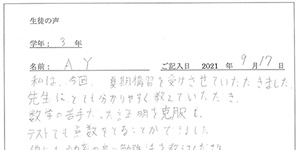 生徒の声
学年： 3 年
名前： A Y ご記入日 2021 年 9 月 17 日
私は、今回、夏期講習を受けさせていただきました。
先生はとても分かりやすく教えていただき、
数学の苦手だった証明を克服し、
テストでも点数をとることができました。